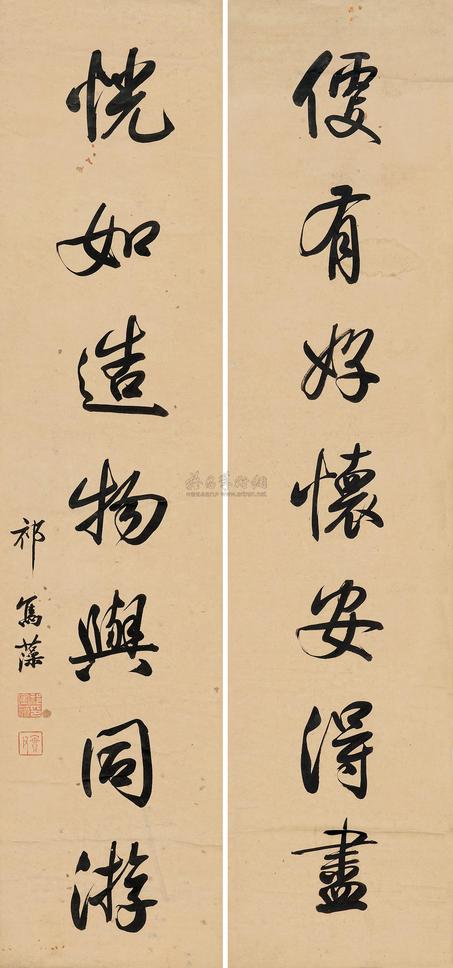 便有好懷安得盡
恍如造物與同游
祁寯藻
www.artron.net